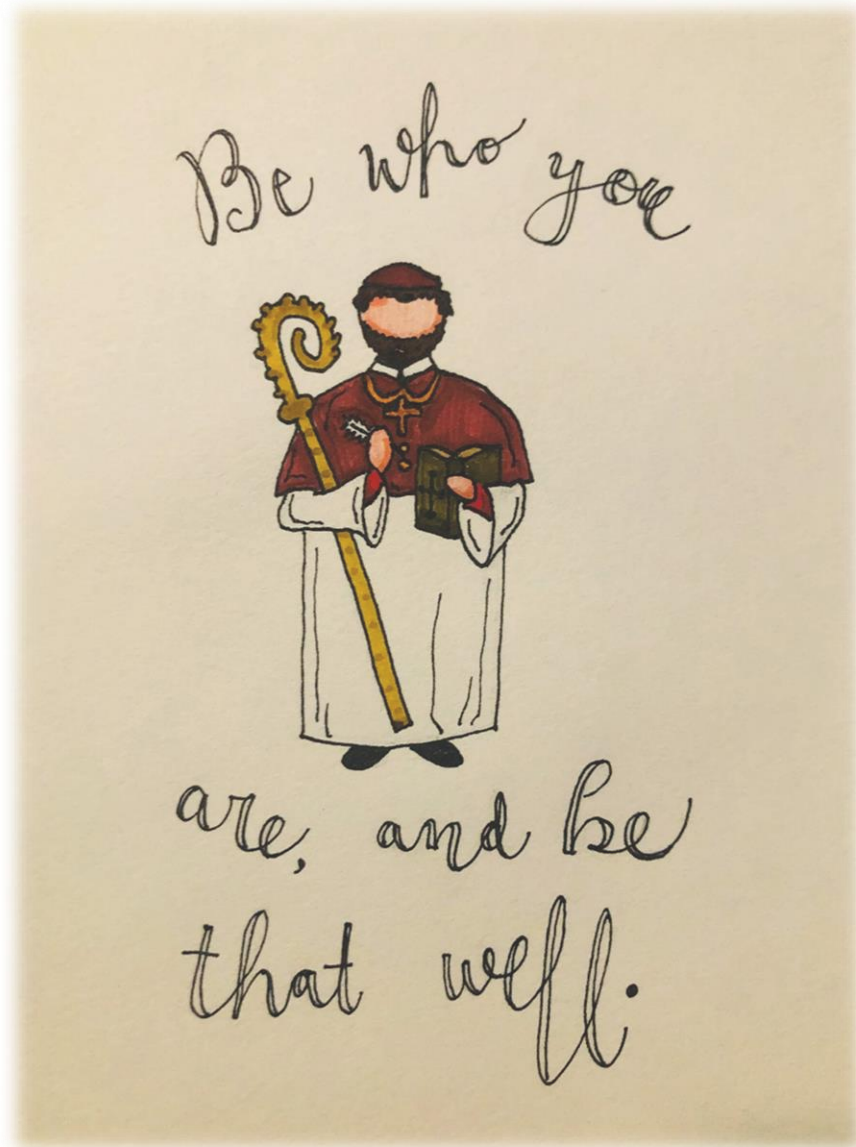 Be who you
are, and be
that well.